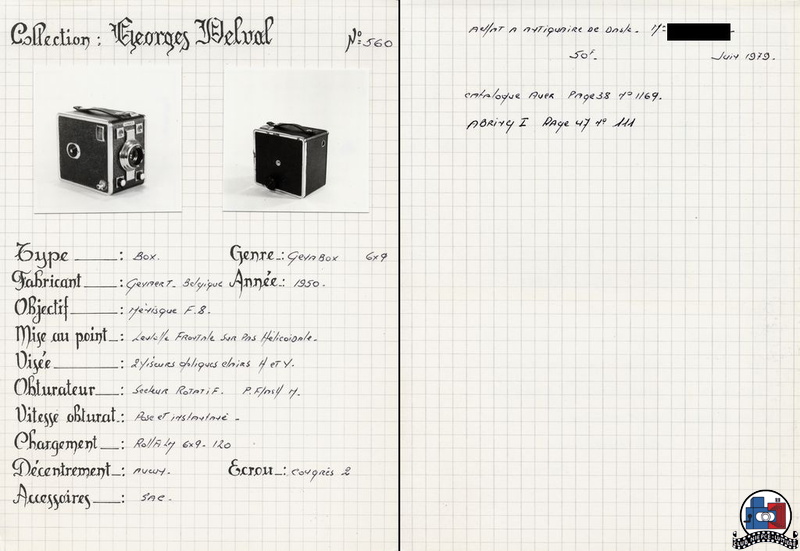 Collection : Georges Delval Nº 560
Type : Box. Genre : GevaBox 6x9
Fabricant : Gevaert. Belgique Année : 1950.
Objectif : Ménisque F.8.
Mise au point : Lentille Frontale sur Pas Hélicoidale.
Visée : 2 Viseurs optiques clairs H et V.
Obturateur : Secteur Rotatif. P. Flash M.
Vitesse obturat. : Pose et instantané.
Chargement : Rollfilm 6x9. 120
Décentrement : Aucun. Ecrou : Congrès 2
Accessoires : SAC.
Achat A Antiquaire de Dnsle. Mr
50F. Juin 1979.
Catalogue Auer Page 38 Nº 1169.
ABRING I Page 47 Nº 111